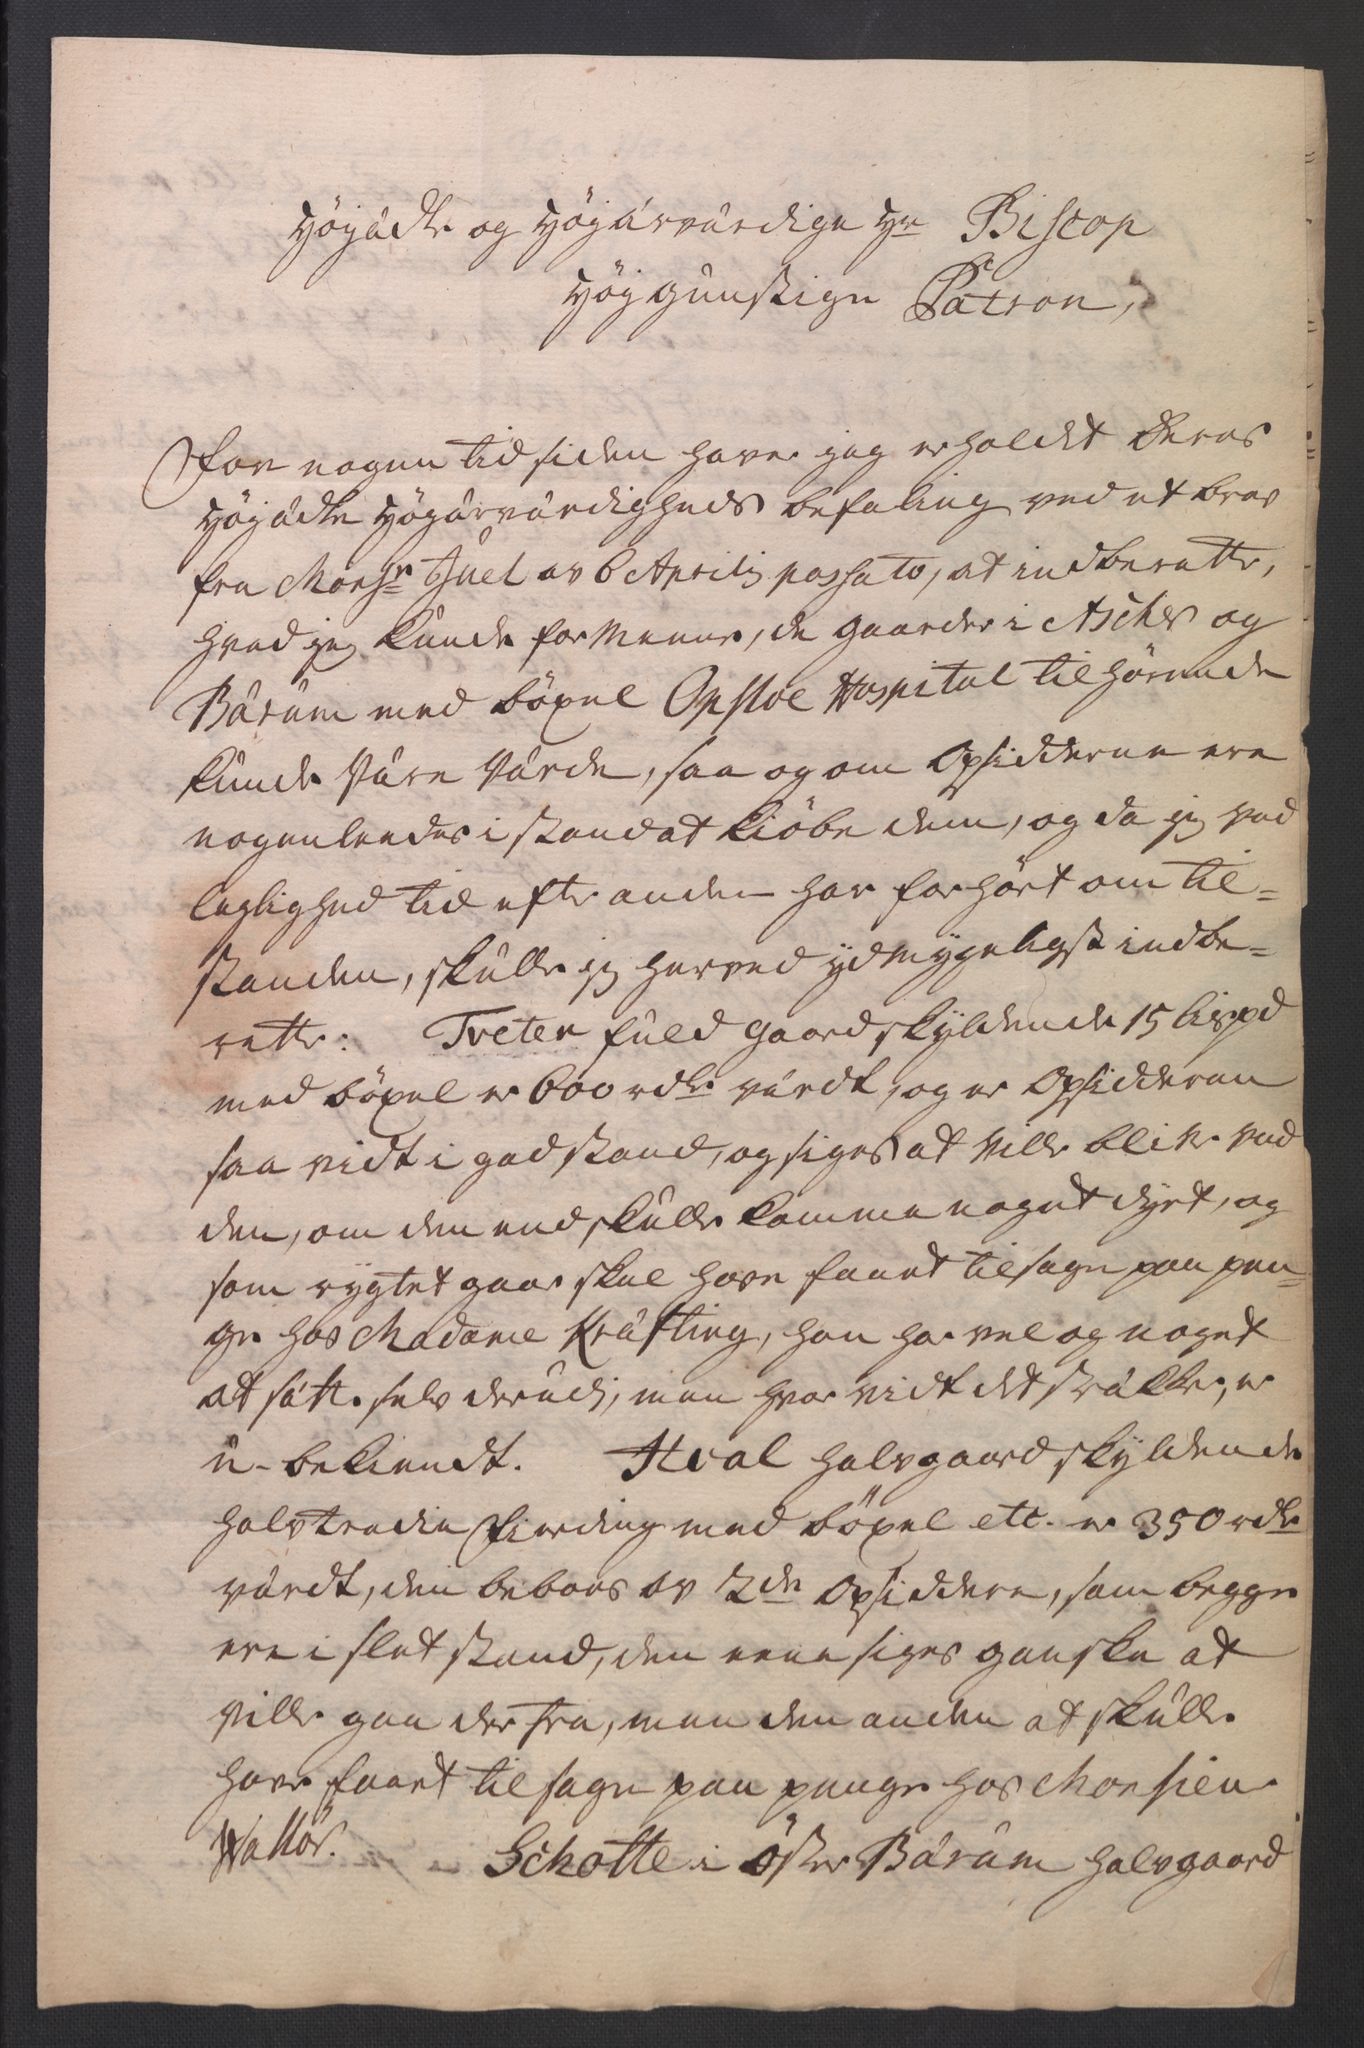 Högädle og Högärværdige Hr Biscop
Höggunstige Patron,
For nogen tid siden haver jeg erholdet Deres
Högädle Högärværdigheds befaling ved et brev
fra Monsr Juel av 6 Aprilij passato, at indberette,
hvad jeg kunde formeene, de gaarder i Ascher og
Bärum med böxel Opsloe Hospital tilhörende
kunde være värde, saa og om Opsidderne ere
nogenleedes i stand at kiöbe dem, og da jeg ved
leylighed tid efter anden har forhört om til=
standen, skulle jeg herved ydmygeligst indbe=
rette: Tveter fuld gaard skyldende 15 lispd
med böxel er 600 rdlr värdt, og er Opsidderen
saa vidt i god stand, og siges at ville blive ved
den, om den end skulle komme noget dyrt, og
som rygtet gaar skal have faaet tilsagn paa pen=
ge hos Madame Kräfting, han har vel og noget
at sätte selv derudj, men hvor vidt det sträkker, er
u-bekiendt. Hval halvgaard skyldende
halvtredie fierding med böxel etc. er 350 rdlr
värdt, den beboes av 2de Opsiddere, som begge
ere i slet stand, den eene siges ganske at
ville gaa der fra, men den anden at skulle
have faaet tilsagn paa penge hos Monsieur
Wallör. Schotte i Öster Bärum halvgaard